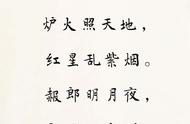 炉火照天地，
红星乱紫烟。
赧郎明月夜，